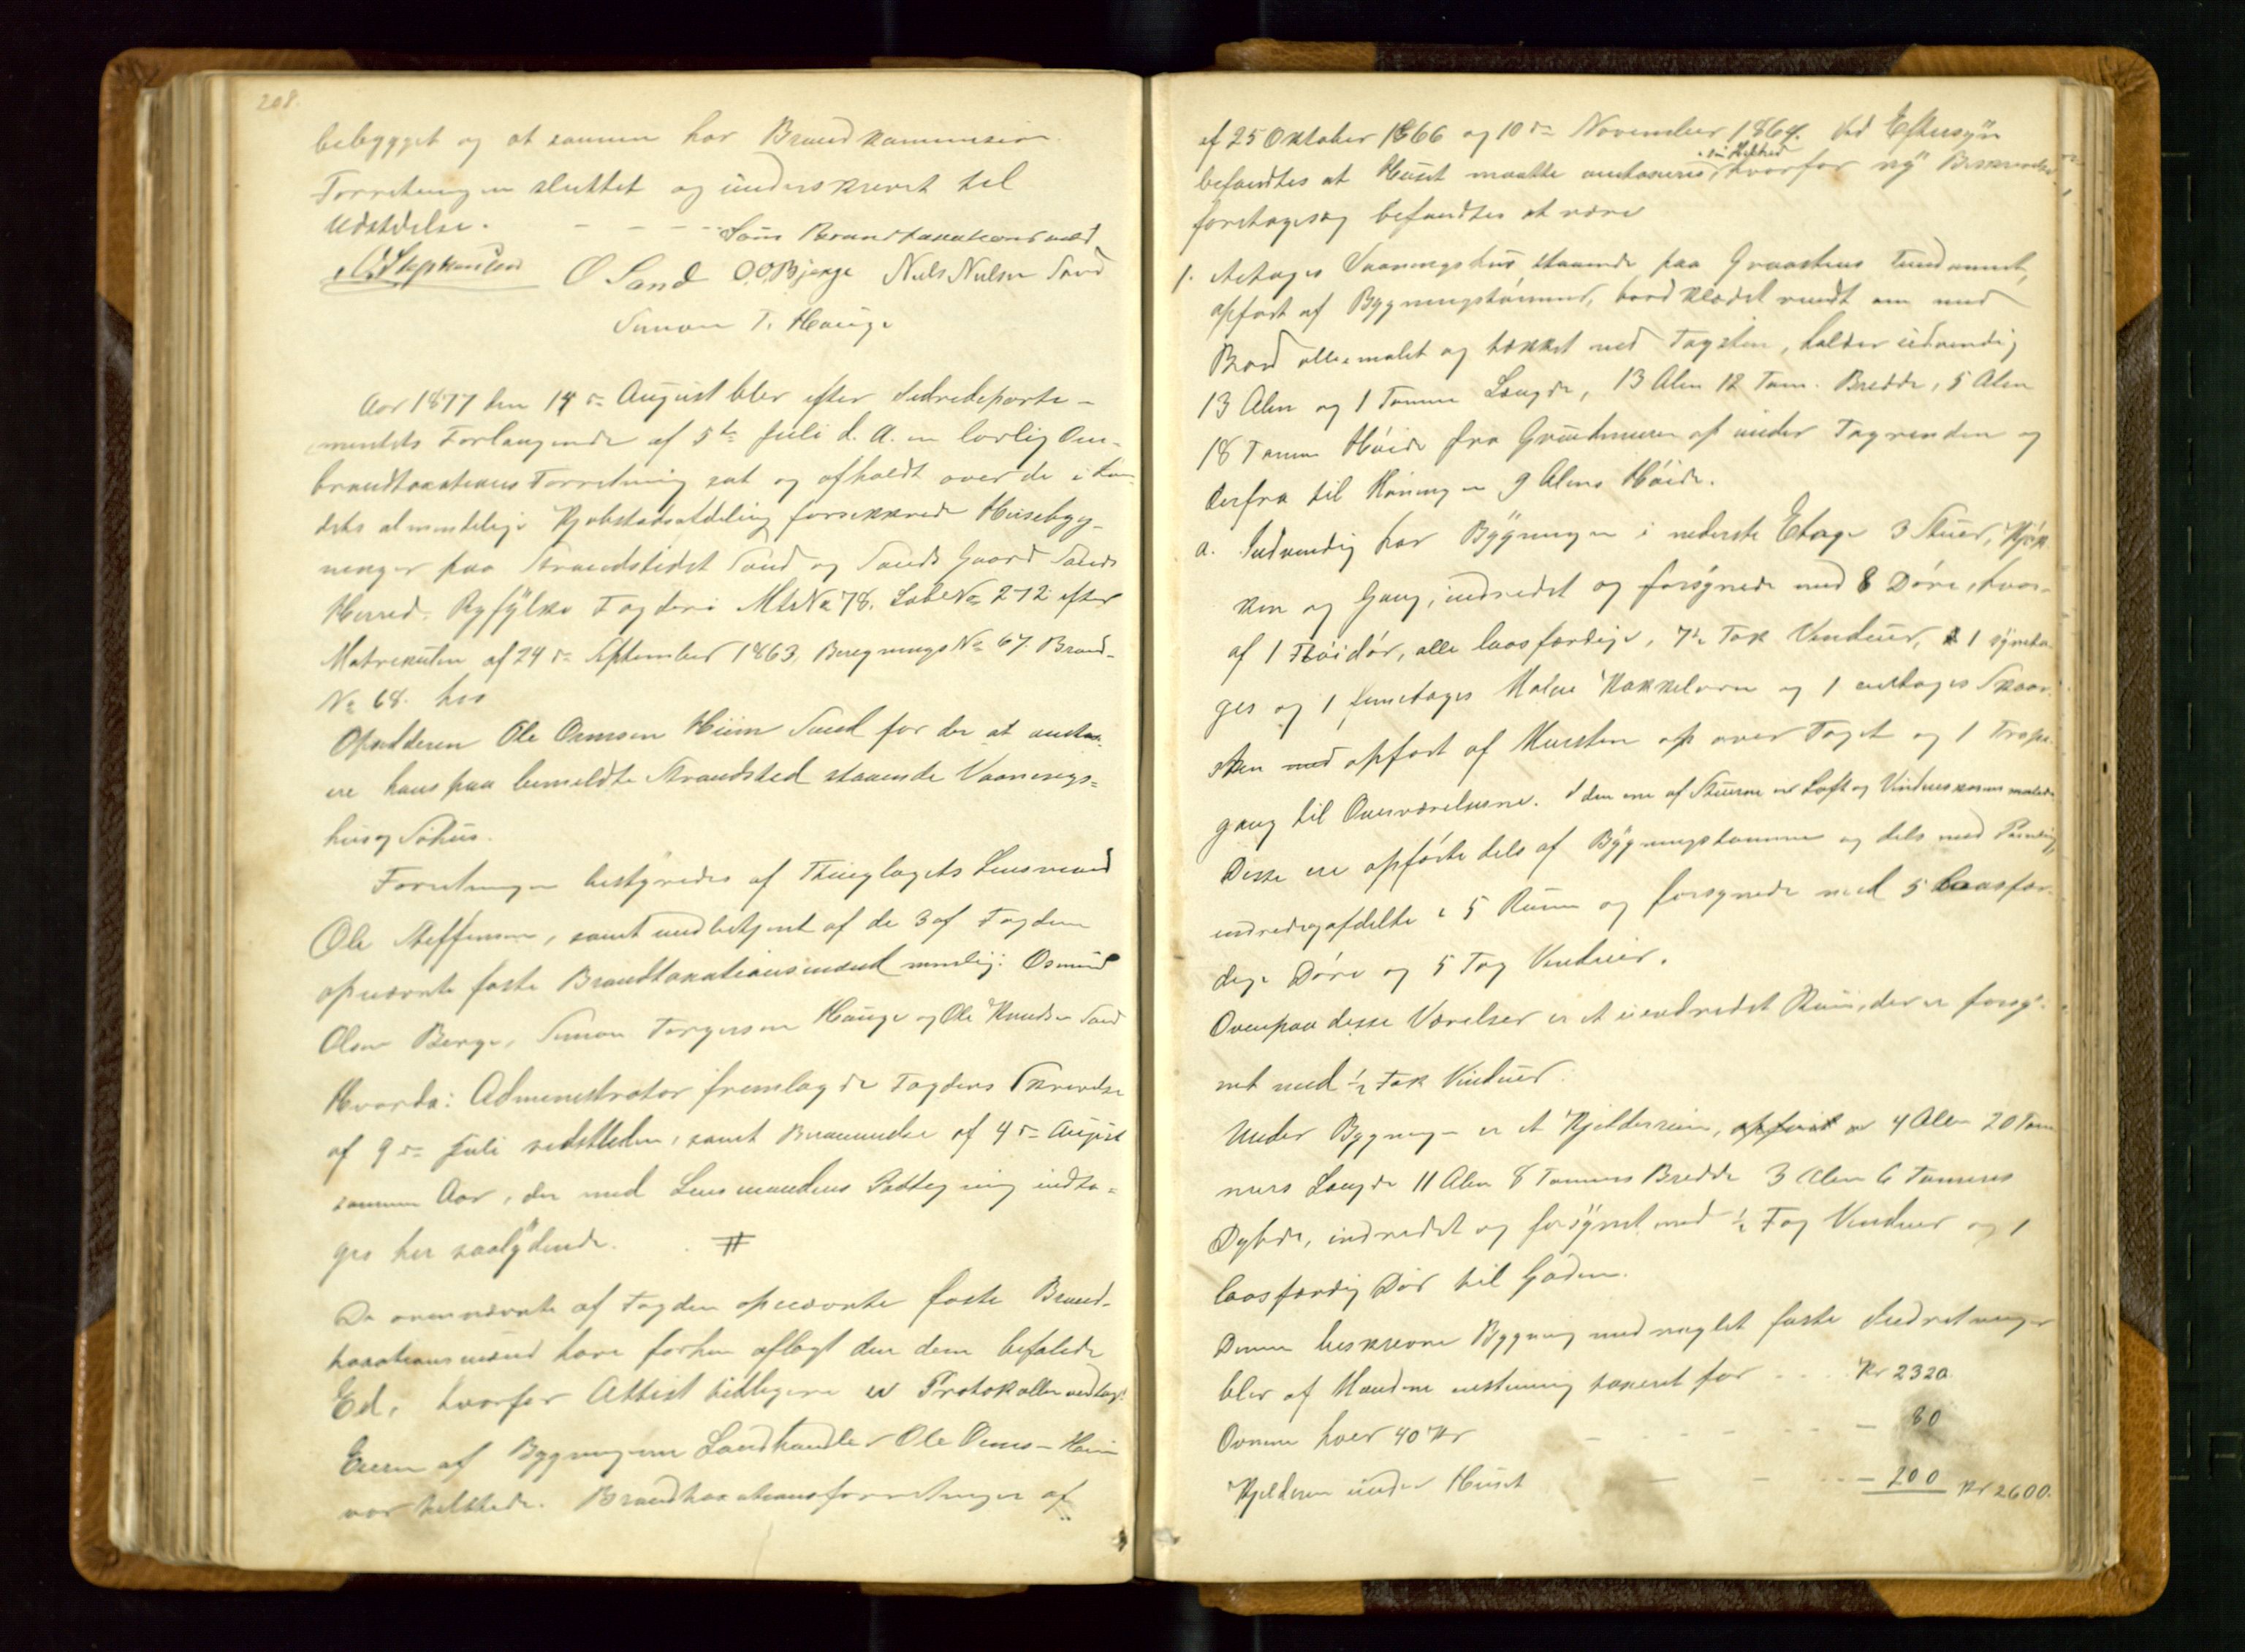 208.
bebygget og at samme har Brandkommission
Forretningen sluttet og underskrevet til
Udstedelse. - - - - Som Brandtaxationsmænd
O Sand O.O.Bjerge Niels Nielsen Sand
Simon T. Hauge
Aar 1877 den 14de August blev efter Indredeparte-
mentets Forlangende af 5te Juli d. A. en lovlig Om-
brandtaxations Forretning sat og afholdt over de i Lan-
dets almindelige Kjøbstadsafdeling forsikkrede Husebyg-
ninger paa Strandstedet Sand og Sands Gaard Sands
Herred, Ryfylke Fogderi Mtr No 78. Løbe No 272 efter
Matrikulen af 24de September 1863, Beregnings No 67. Brand-
No 68. hos
Opsidderen Ole Osmsen Hiim Sand for der at omtax-
ere hans paa bemeldte Strandsted staaende Vaanings-
hus og Søhus.
Forretningen bestyredes af Thinglagets Lensmand
Ole Steffensen, samt med betjent af de 3 af Fogden
opnævnte faste Brandtaxationsmænd nemlig: Osmund
Olsen Berge, Simon Torgersen Hauge og Ole Knudsen Sand
Hvorda: Administrator fremlagde Fogdens Skrivelse
af 9de Juli sidstleden, samt Berammelse af 4de August
samme Aar, der med Lensmandens Paategning indta-
ges her saalydende. #
De ovennævnte af Fogden opnævnte faste Brand-
taxationsmænd have forhen aflagt den dem befalede
Ed, hvorfor Attest tidligere er Protokollen vedlagt.
Eieren af Bygningerne Landhandler Ole Osms- Hiim
var tilstede. Brandtaxationsforretninger af
af 25 Oktober 1866 og 10de November 1864. Ved Eftersyn
i sin Helhed
befandtes at Huset maatte omtaxeres, hvorfor ny Beskrivelse
foretages og befandtes at være
1. Aetages Vaaningshus staaende paa Graastens Fundament,
opført af Bygningstømmer, bordklædet rundt om med
Bord oliemalet og tækket med Tagsten, holder udvendig
13 Alen og 1 Tomme Længde, 13 Alen 12 Tom. Bredde, 5 Alen
18 Tomm Høide fra Grundmuren op under Tagrenden og
derfra til Møningen 9 Alens Høide.
a. Indvendig har Bygningen i nederste Etage 3 Stuer, Kjøk-
ken og Gang, indredet og forsynede med 8 Døre, hvor-
af 1 Fløidør, alle laasfærdige, 7½ Fag Vinduer, 1
ges og 1 femetages Malm Kakkelovn og 1 enetages Skaar-
sten opført af Mursten op over Taget og 1 Trappe-
gang til Overværelserne. I den ene af Stuerne er Loft og Vindueskarme malede
Disse ere opførte dels af Bygningstømmer og dels med Paneling
indredet og afdelte i 5 Rum og forsynede med 5 laasfær-
dige Døre og 5 Fag Vinduer.
Ovenpaa desse Værelser er et uindredet Rum, der er forsy-
net med ½ Fag Vinduer.
Under Bygningen er et Kjelderrum, 4 Alen 20 Tom-
mers Længde 11 Alen 8 Tommers Bredde 3 Alen 6 Tommers
Dybde, indredet og forsynet med ½ Fag Vinduer og 1
laasfærdig Dør til Gaden.
Denne beskrevne Bygning med naglet faste Indretninger
blev af Mændene enstemmig taxeret for - - - Kr 2320
Ovnene hver 40 Kr - - - - - 80
Kjelderen under Huset - - - - 200 Kr 2600.